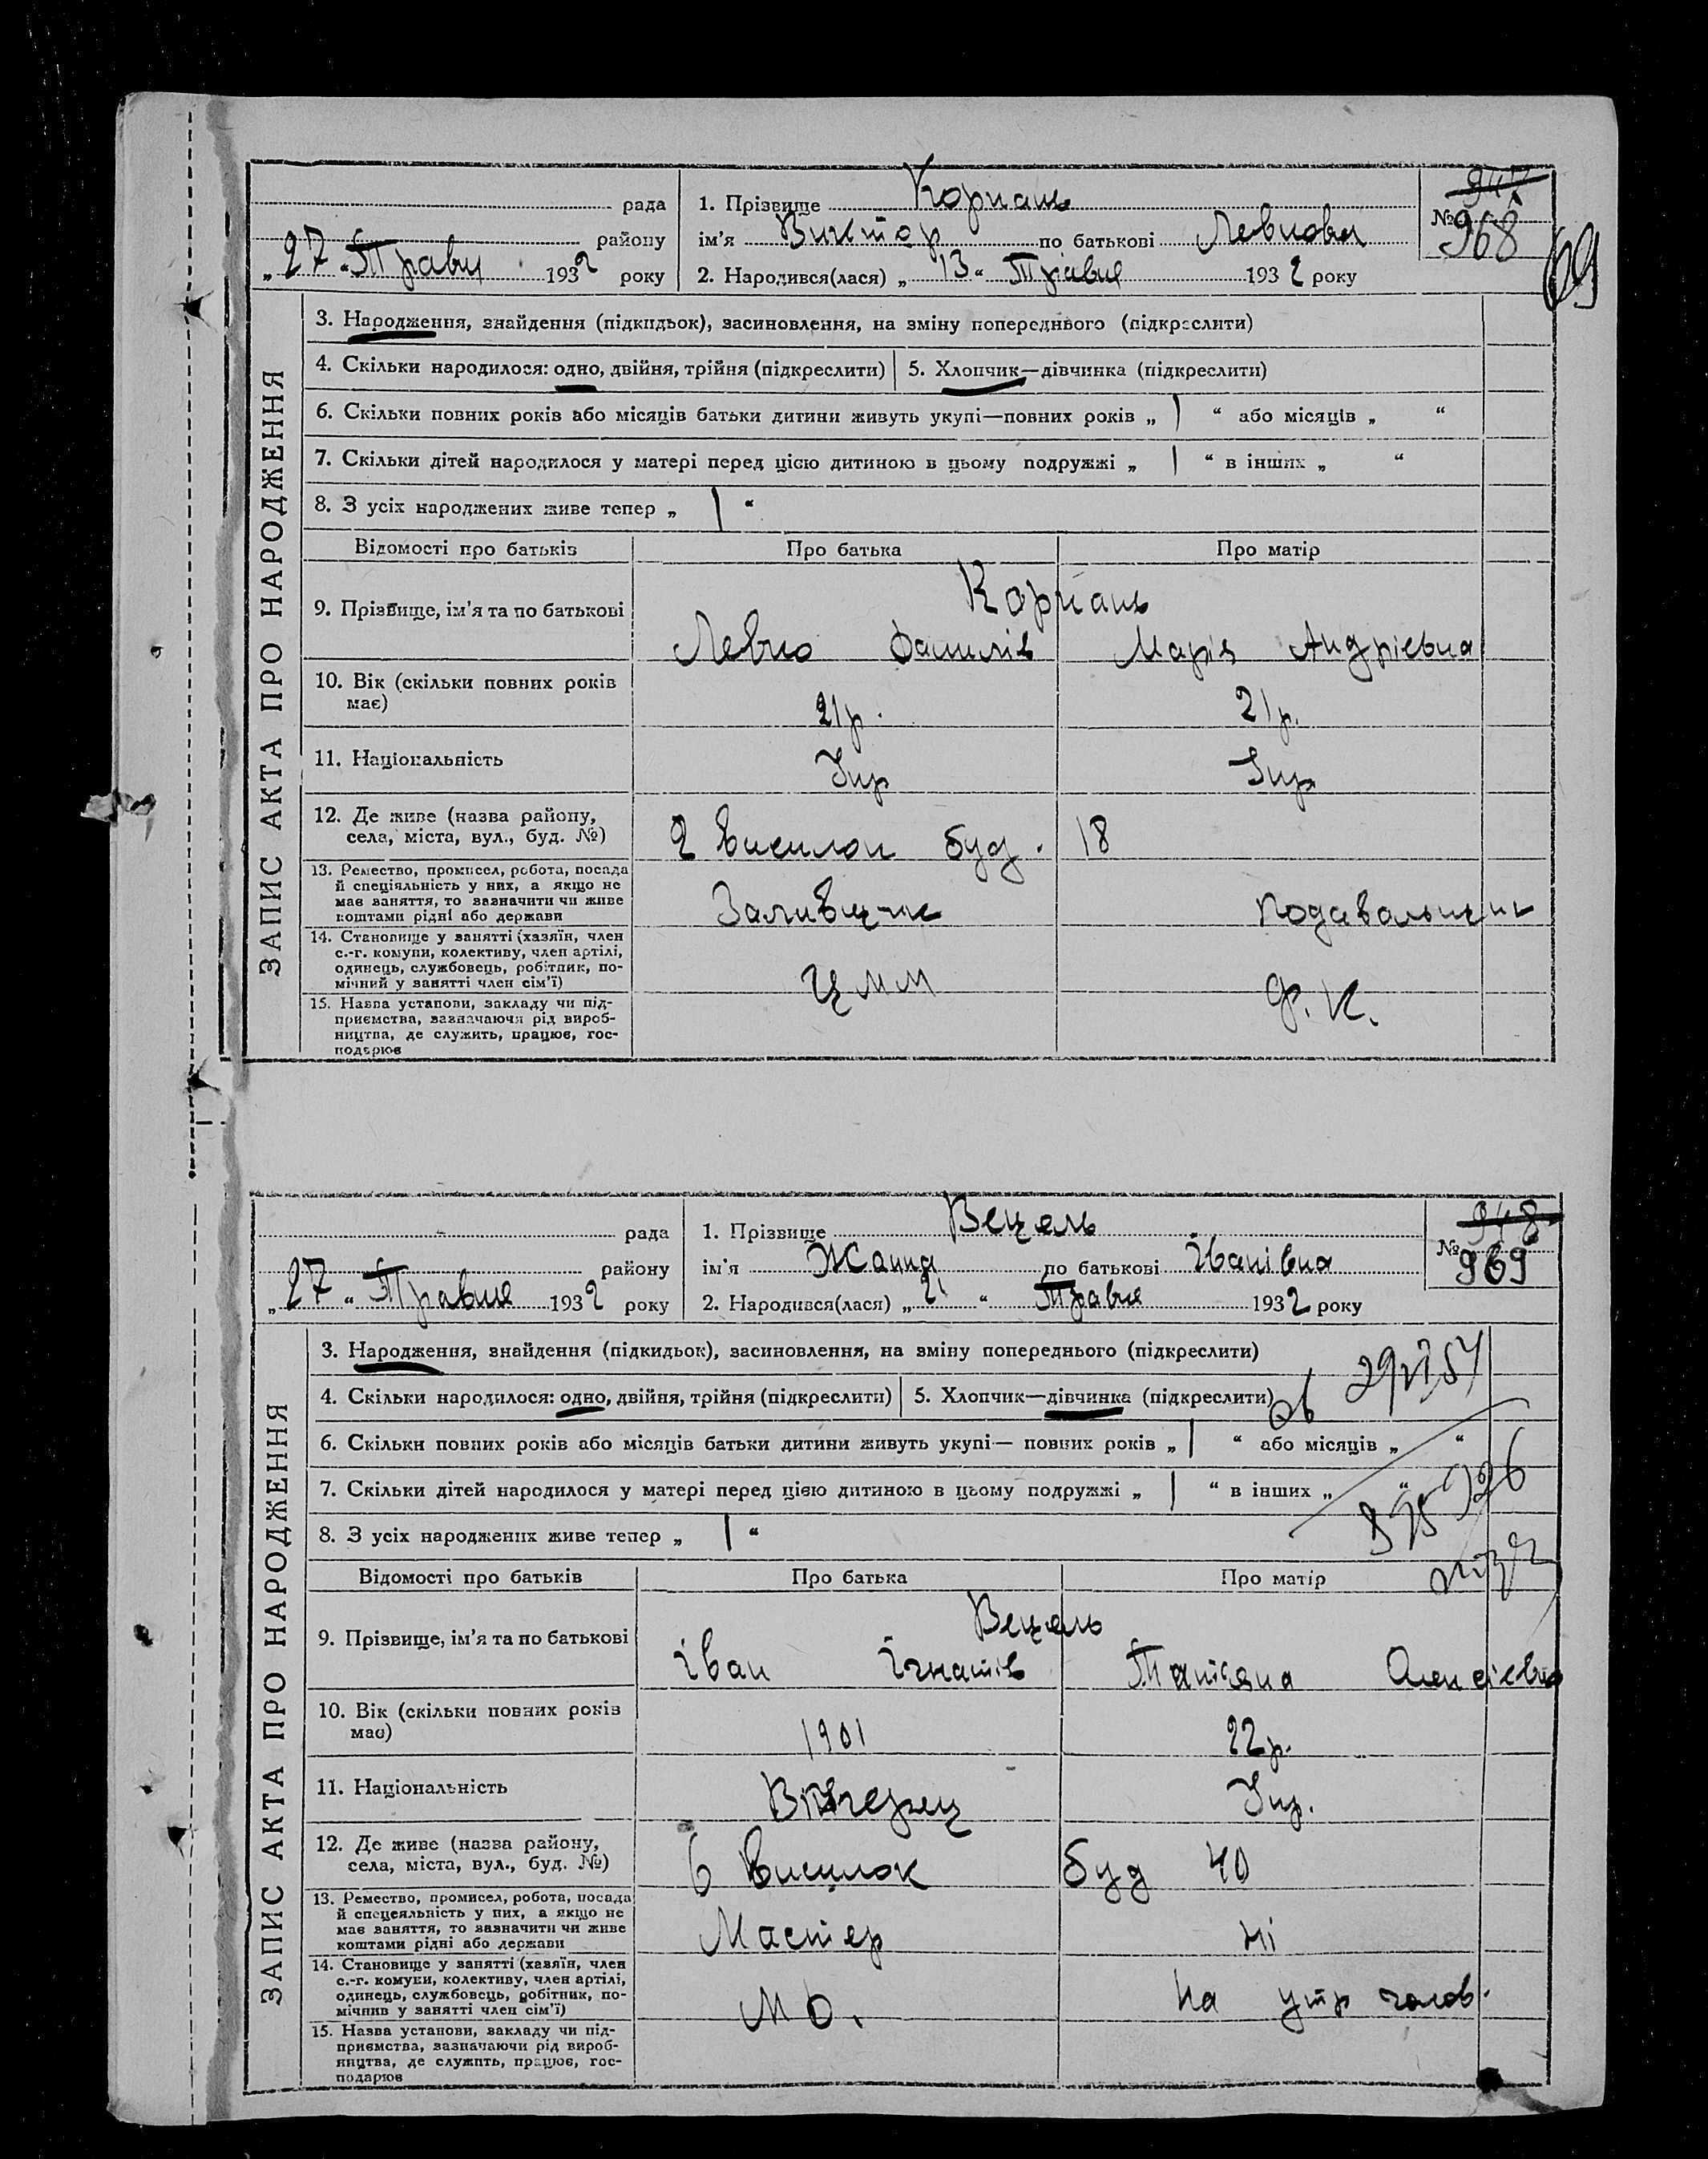 947
рада 1. Прізвище Корпань № 968
району ім'я Виктор по батькові Левкови 69
„27“ Травн 1932 року 2. Народився(лася) „13“ Травня 1932 року
ЗАПИС АКТА ПРО НАРОДЖЕННЯ
3. Народження, знайдення (підкидьок), засиновлення, на зміну попереднього (підкреслити)
4. Скільки народилося: одно, двійня, трійня (підкреслити) 5. Хлопчик—дівчинка (підкреслити)
6. Скільки повних років або місяців батьки дитини живуть укупі—повних років „ 1 “ або місяців „ “
7. Скільки дітей народилося у матері перед цією дитиною в цьому подружжі „ 1 “ в інших „ “
8. З усіх народжених живе тепер „ 1 “
Відомості про батьків Про батька Про матір
9. Прізвище, ім'я та по батькові
Левко Марія Андрієвна
10. Вік (скільки повних років має) 21р. 21р.
11. Національність Укр Укр
12. Де живе (назва району, села, міста, вул., буд. №) 2 висилок буд. 18
13. Ремество, промисел, робота, посада
й спеціяльність у них, а якщо не
має заняття, то зазначити чи живе
коштами рідні або держави
Заливщик подавальщик
14. Становище у занятті (хазяїн, член
с.-г. комуни, колективу, член артілі,
одинець, службовець, робітник, по-
мічний у занятті член сім'ї)
ЦММ Ф.К.
15. Назва установи, закладу чи під-
приємства, зазначаючи рід вироб-
ництва, де служить, працює, гос-
подарює
948
рада 1. Прізвище Вецель № 969
району ім'я Жанна по батькові Іванівна
„27“ Травня 1932 року 2. Народився(лася) „21“ Травня 1932 року
ЗАПИС АКТА ПРО НАРОДЖЕННЯ
3. Народження, знайдення (підкидьок), засиновлення, на зміну попереднього (підкреслити)
4. Скільки народилося: одно, двійня, трійня (підкреслити) 5. Хлопчик—дівчинка (підкреслити)
6. Скільки повних років або місяців батьки дитини живуть укупі— повних років „ 1 “ або місяців „ “
7. Скільки дітей народилося у матері перед цією дитиною в цьому подружжі „ 1 “ в інших „ “
8. З усіх народжених живе тепер „ 1 “
Відомості про батьків Про батька Про матір
Вецель
9. Прізвище, ім'я та по батькові Іван Ігнатів Татіяна Олексієвна
10. Вік (скільки повних років має) 1901 22р.
11. Національність Укр.
12. Де живе (назва району, села, міста, вул., буд. №) 6 висилок буд 40
13. Ремество, промисел, робота, посада
й спецеяльність у них, а якщо не
має заняття, то зазначити чи живе
коштами рідні або держави
Мастер Ні
14. Становище у занятті (хазяїн, член
с.-г. комуни, колективу, член артілі,
одинець, службовець, робітник, по-
мічний у занятті член сім'ї)
на утр чолов.
15. Назва установи, закладу чи під-
приємства, зазначаючи рід вироб-
ництва, де служить, працює, гос-
подарює